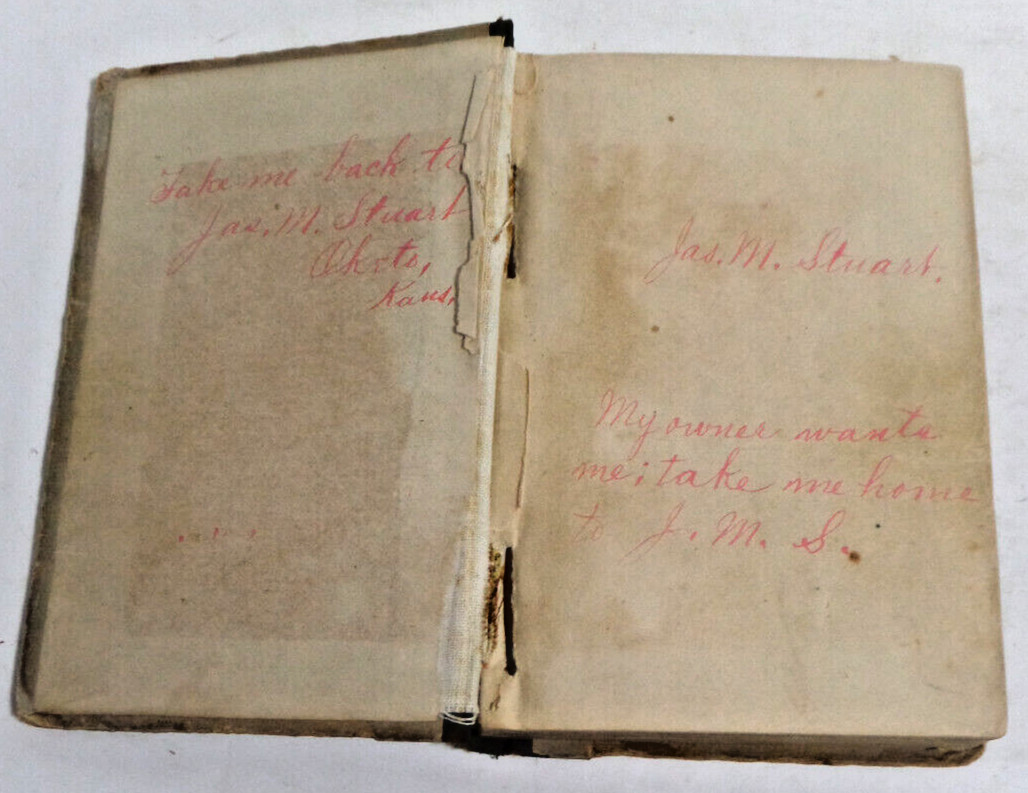 Take me back to
Jas. M. Stuart
Oketo,
Kans.
Jas. M. Stuart.
My owner wants
me; take me home
to J. M. S.